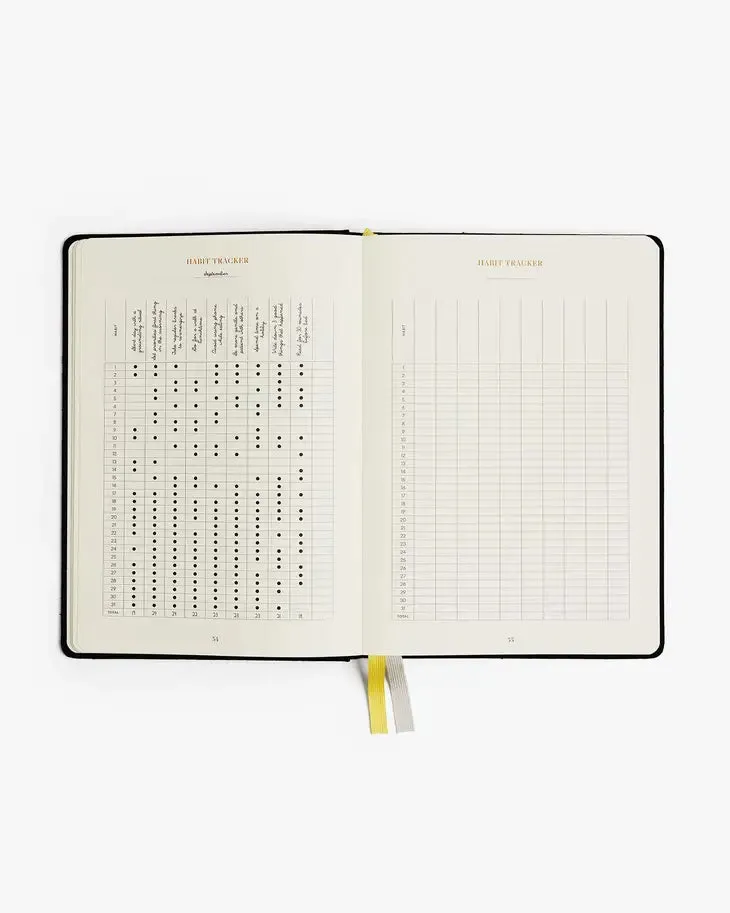 HABIT TRACKER
september
HABIT
start day with a
grounding ritual
in the morning
Take regular breaks
Go for a walk at
lunchtime
Avoid using phone
while eating
Be more gentle and
patient with others
Spend time on a
hobby
Write down 3 good
things that happened
Read for 30 minutes
before bed
1
2
3
4
5
6
7
8
9
10
11
12
13
14
15
16
17
18
19
20
21
22
23
24
25
26
27
28
29
30
31
TOTAL
54
HABIT TRACKER
HABIT
1
2
3
4
5
6
7
8
9
10
11
12
13
14
15
16
17
18
19
20
21
22
23
24
25
26
27
28
29
30
31
TOTAL
55